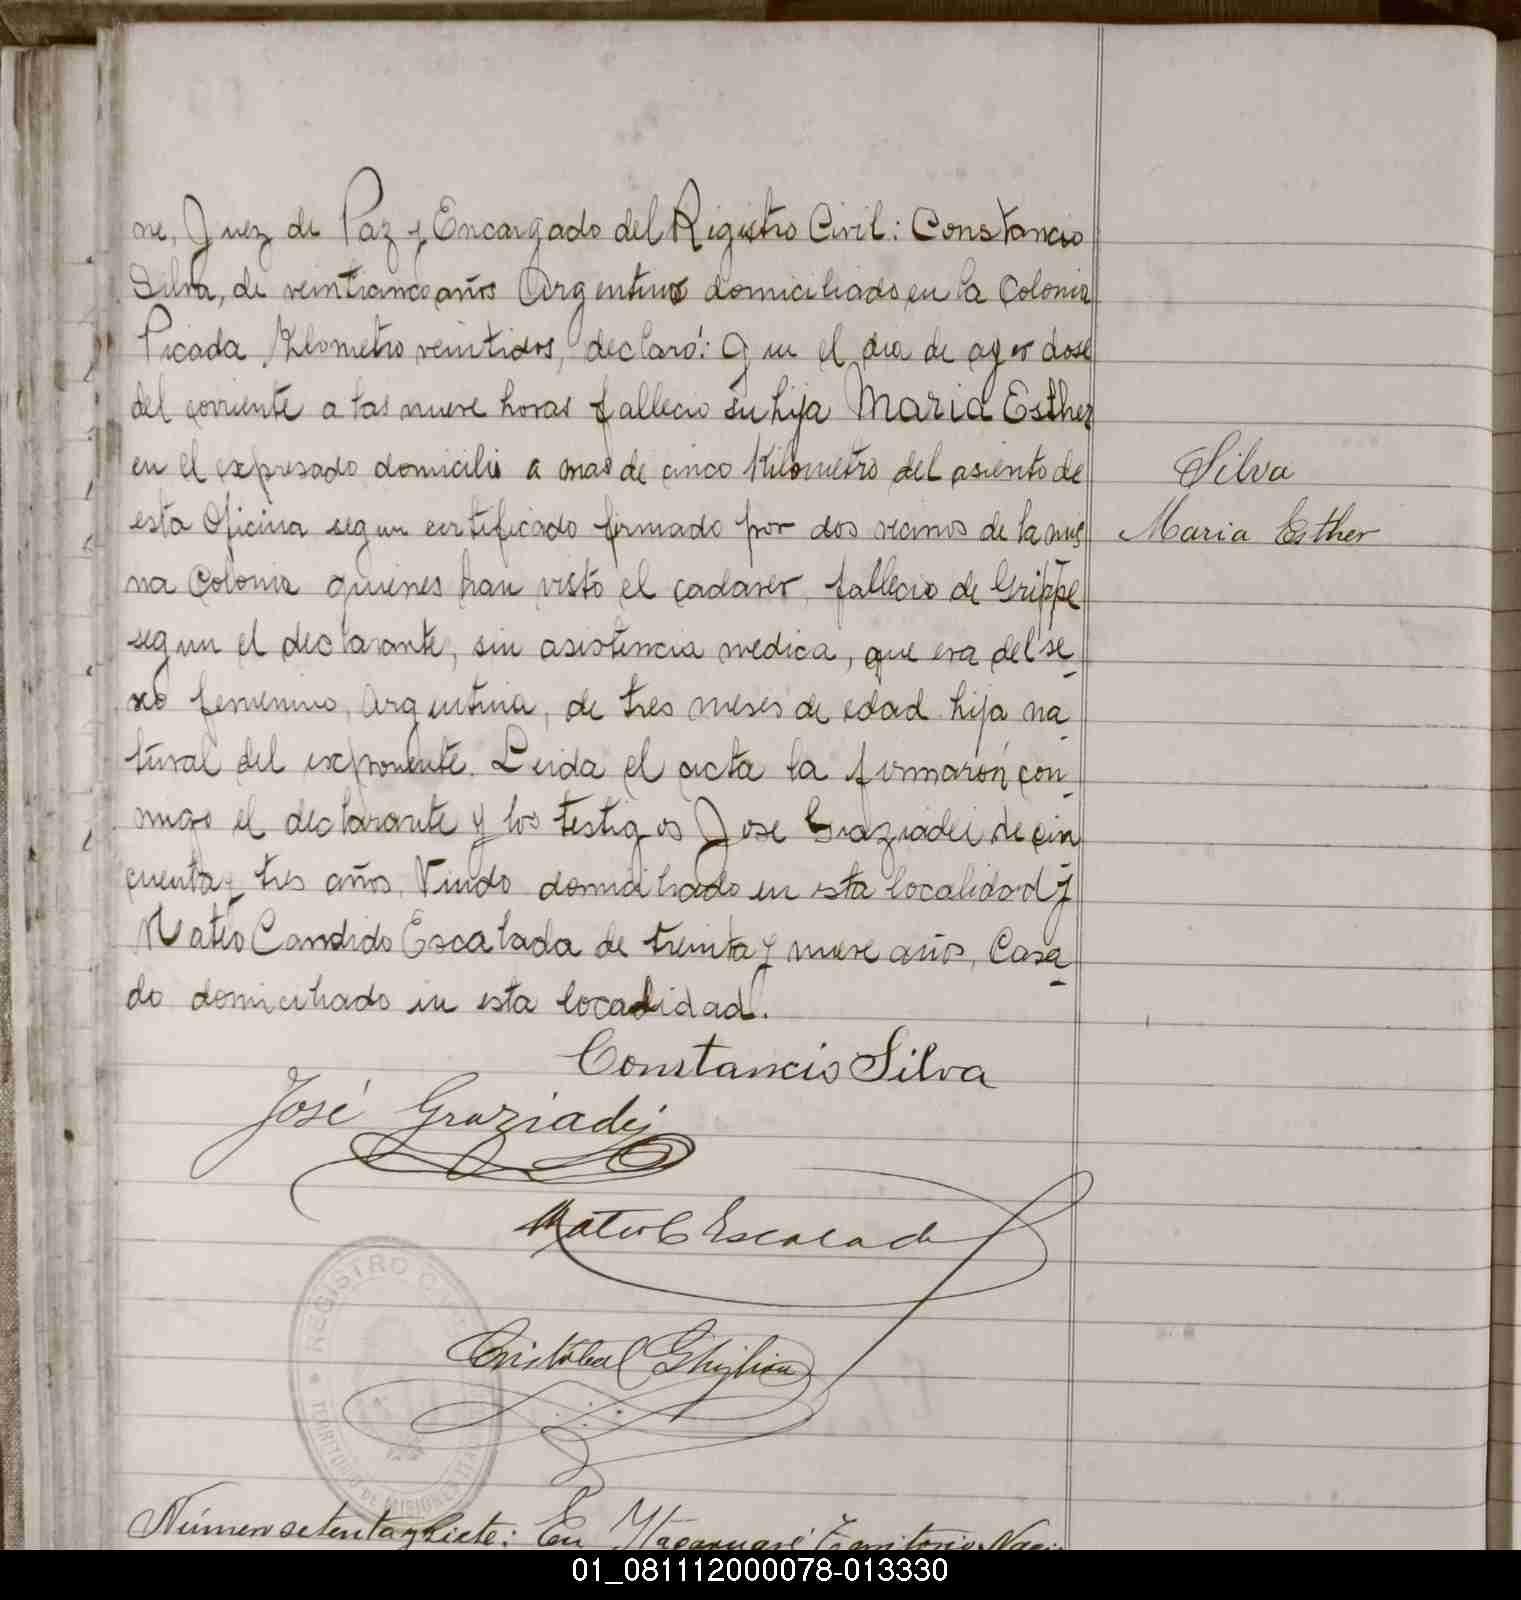 ne, Juez de Paz y Encargado del Registro Civil: Constancio
Silva, de veinticinco años Argentino domiciliado en la Colonia
Picada Kilometro veintidos, declaró: Que el dia de ayer dose
del corriente a las nueve horas fallecio su hija Maria Esther
en el expresado domicilio a mas de cinco Kilometro del asiento de
esta Oficina segun certificado firmado por dos vecinos de la mis
ma Colonia quienes han visto el cadaver, fallecio de Grippe
segun el declarante, sin asistencia medica, que era del se-
xo femenino, Argentina, de tres meses de edad hija na-
tural del exponente. Leida el acta la firmarón con-
migo el declarante y los testigos Jose Graziadei de cin
cuenta y tres años, Viudo domiciliado en esta localidad y
Mateo Candido Escalada de treinta y nueve años, Casa-
do domiciliado en esta localidad.
Silva
Maria Esther
Constancio Silva
José Graziadei
Mateo C Escalada
Cristobal Ghiglion
REGISTRO CIVIL
TERRITORIO DE MISIONES
Número setenta y siete: En Itacaruaré Territorio Naci
01_081112000078-013330